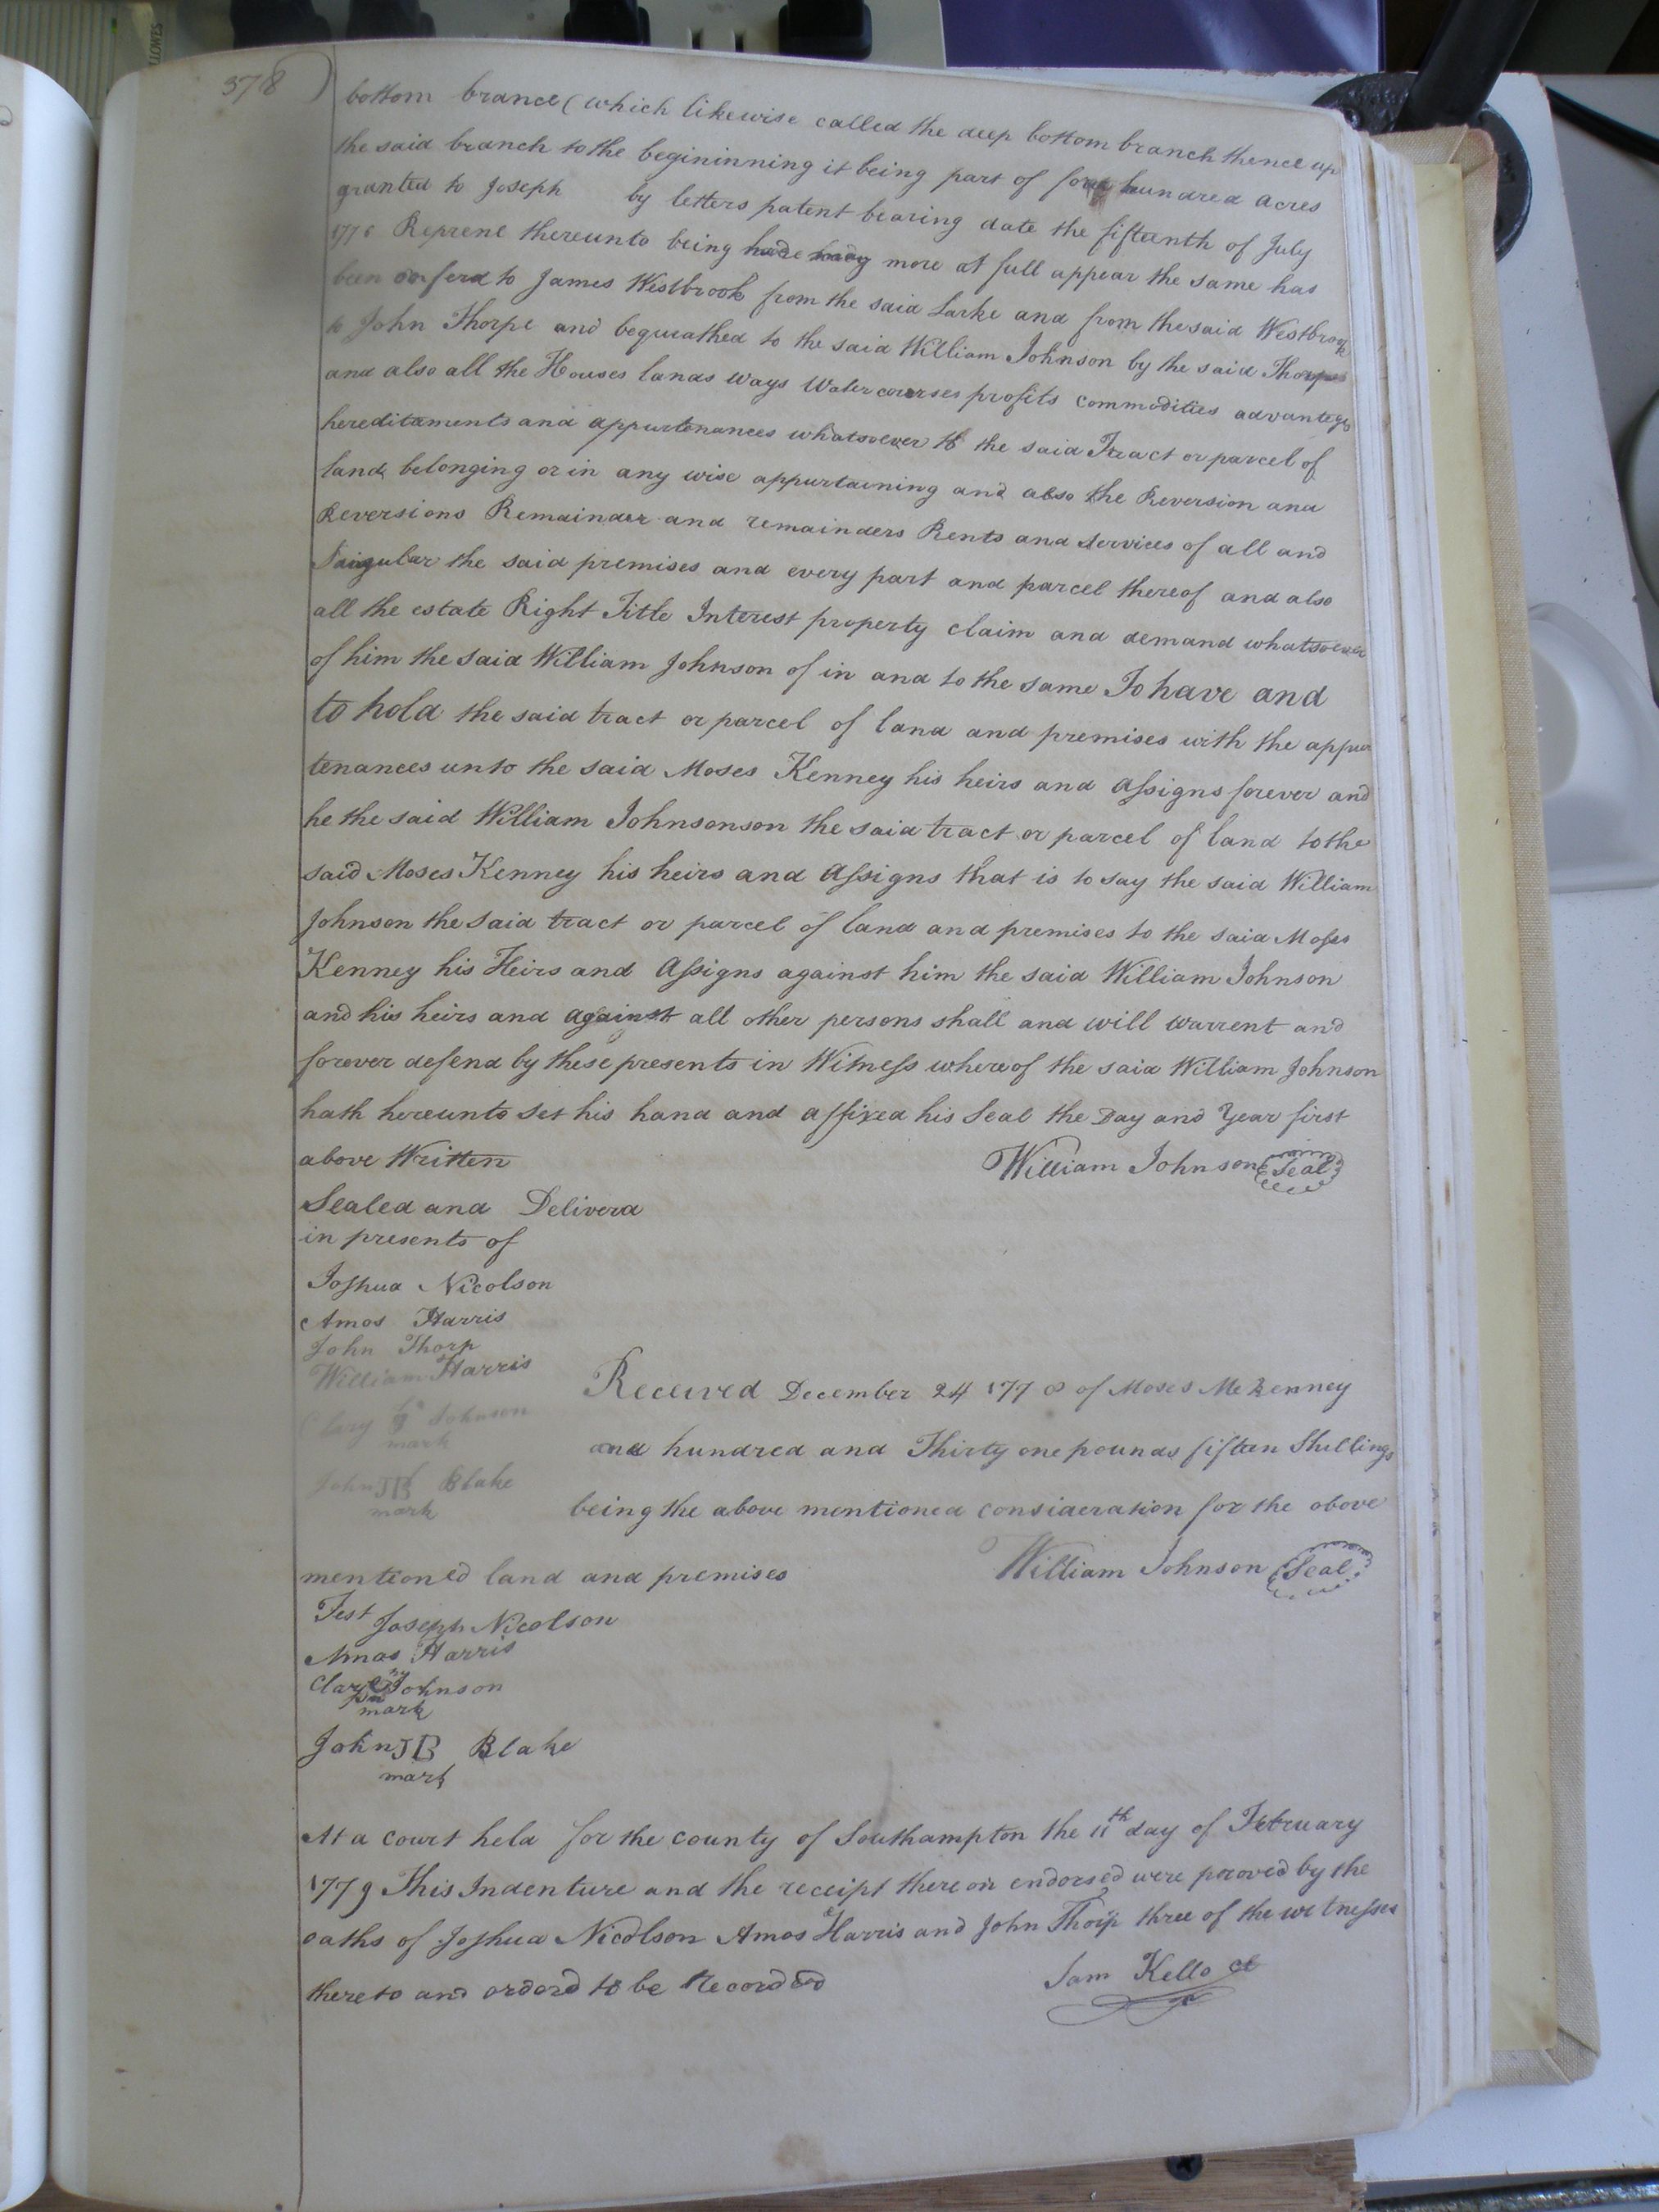 378
bottom brance (which likewise called the deep bottom branch thence up
the said branch to the begininning it being part of four hundred acres
granted to Joseph by letters patent bearing date the fifteenth of July
Reprene thereunto being more at full appear the same has
been to James Westbrook from the said Larke and from the said Westbrook
to John Thorpe and bequeathed to the said William Johnson by the said Thorpe
and also all the Houses lands ways Water courses profits commodities advantages
hereditaments and appurtenances whatsoever to the said Tract or parcel of
land belonging or in any wise appurtaining and also the Reversion and
Reversions Remainder and remainders Rents and Services of all and
Singular the said premises and every part and parcel thereof and also
all the estate Right Title Interest property claim and demand whatsoever
of him the said William Johnson of in and to the same To have and
to hold the said tract or parcel of land and premises with the appur
tenances unto the said Moses Kenney his heirs and Assigns forever and
he the said William Johnsonson the said tract or parcel of land to the
said Moses Kenney his heirs and Assigns that is to say the said William
Johnson the said tract or parcel of land and premises to the said Moses
Kenney his Heirs and Assigns against him the said William Johnson
and his heirs and against all other persons shall and will warrent and
forever defend by these presents in Witness whereof the said William Johnson
hath hereunto set his hand and affixed his Seal the Day and Year first
above Written William Johnson Seal
Sealed and Deliverd
in presents of
Joshua Nicolson
Amos Harris
John Thorp
William Harris
Received December 24 1778 of Moses McKenney
Clary Johnson
mark
one hundred and Thirty one pounds fifteen Shillings
John JB Blake
mark
being the above mentioned consideration for the above
mentioned land and premises William Johnson Seal
Test Joseph Nicolson
Amos Harris
Clary Johnson
mark
John JB Blake
mark
At a court held for the county of Southampton the 11th day of February
1779 This Indenture and the receipt thereon endorsed were proved by the
oaths of Joshua Nicolson Amos Harris and John Thorp three of the witnesses
thereto and orderd to be Recorded
Sam Kello Cl